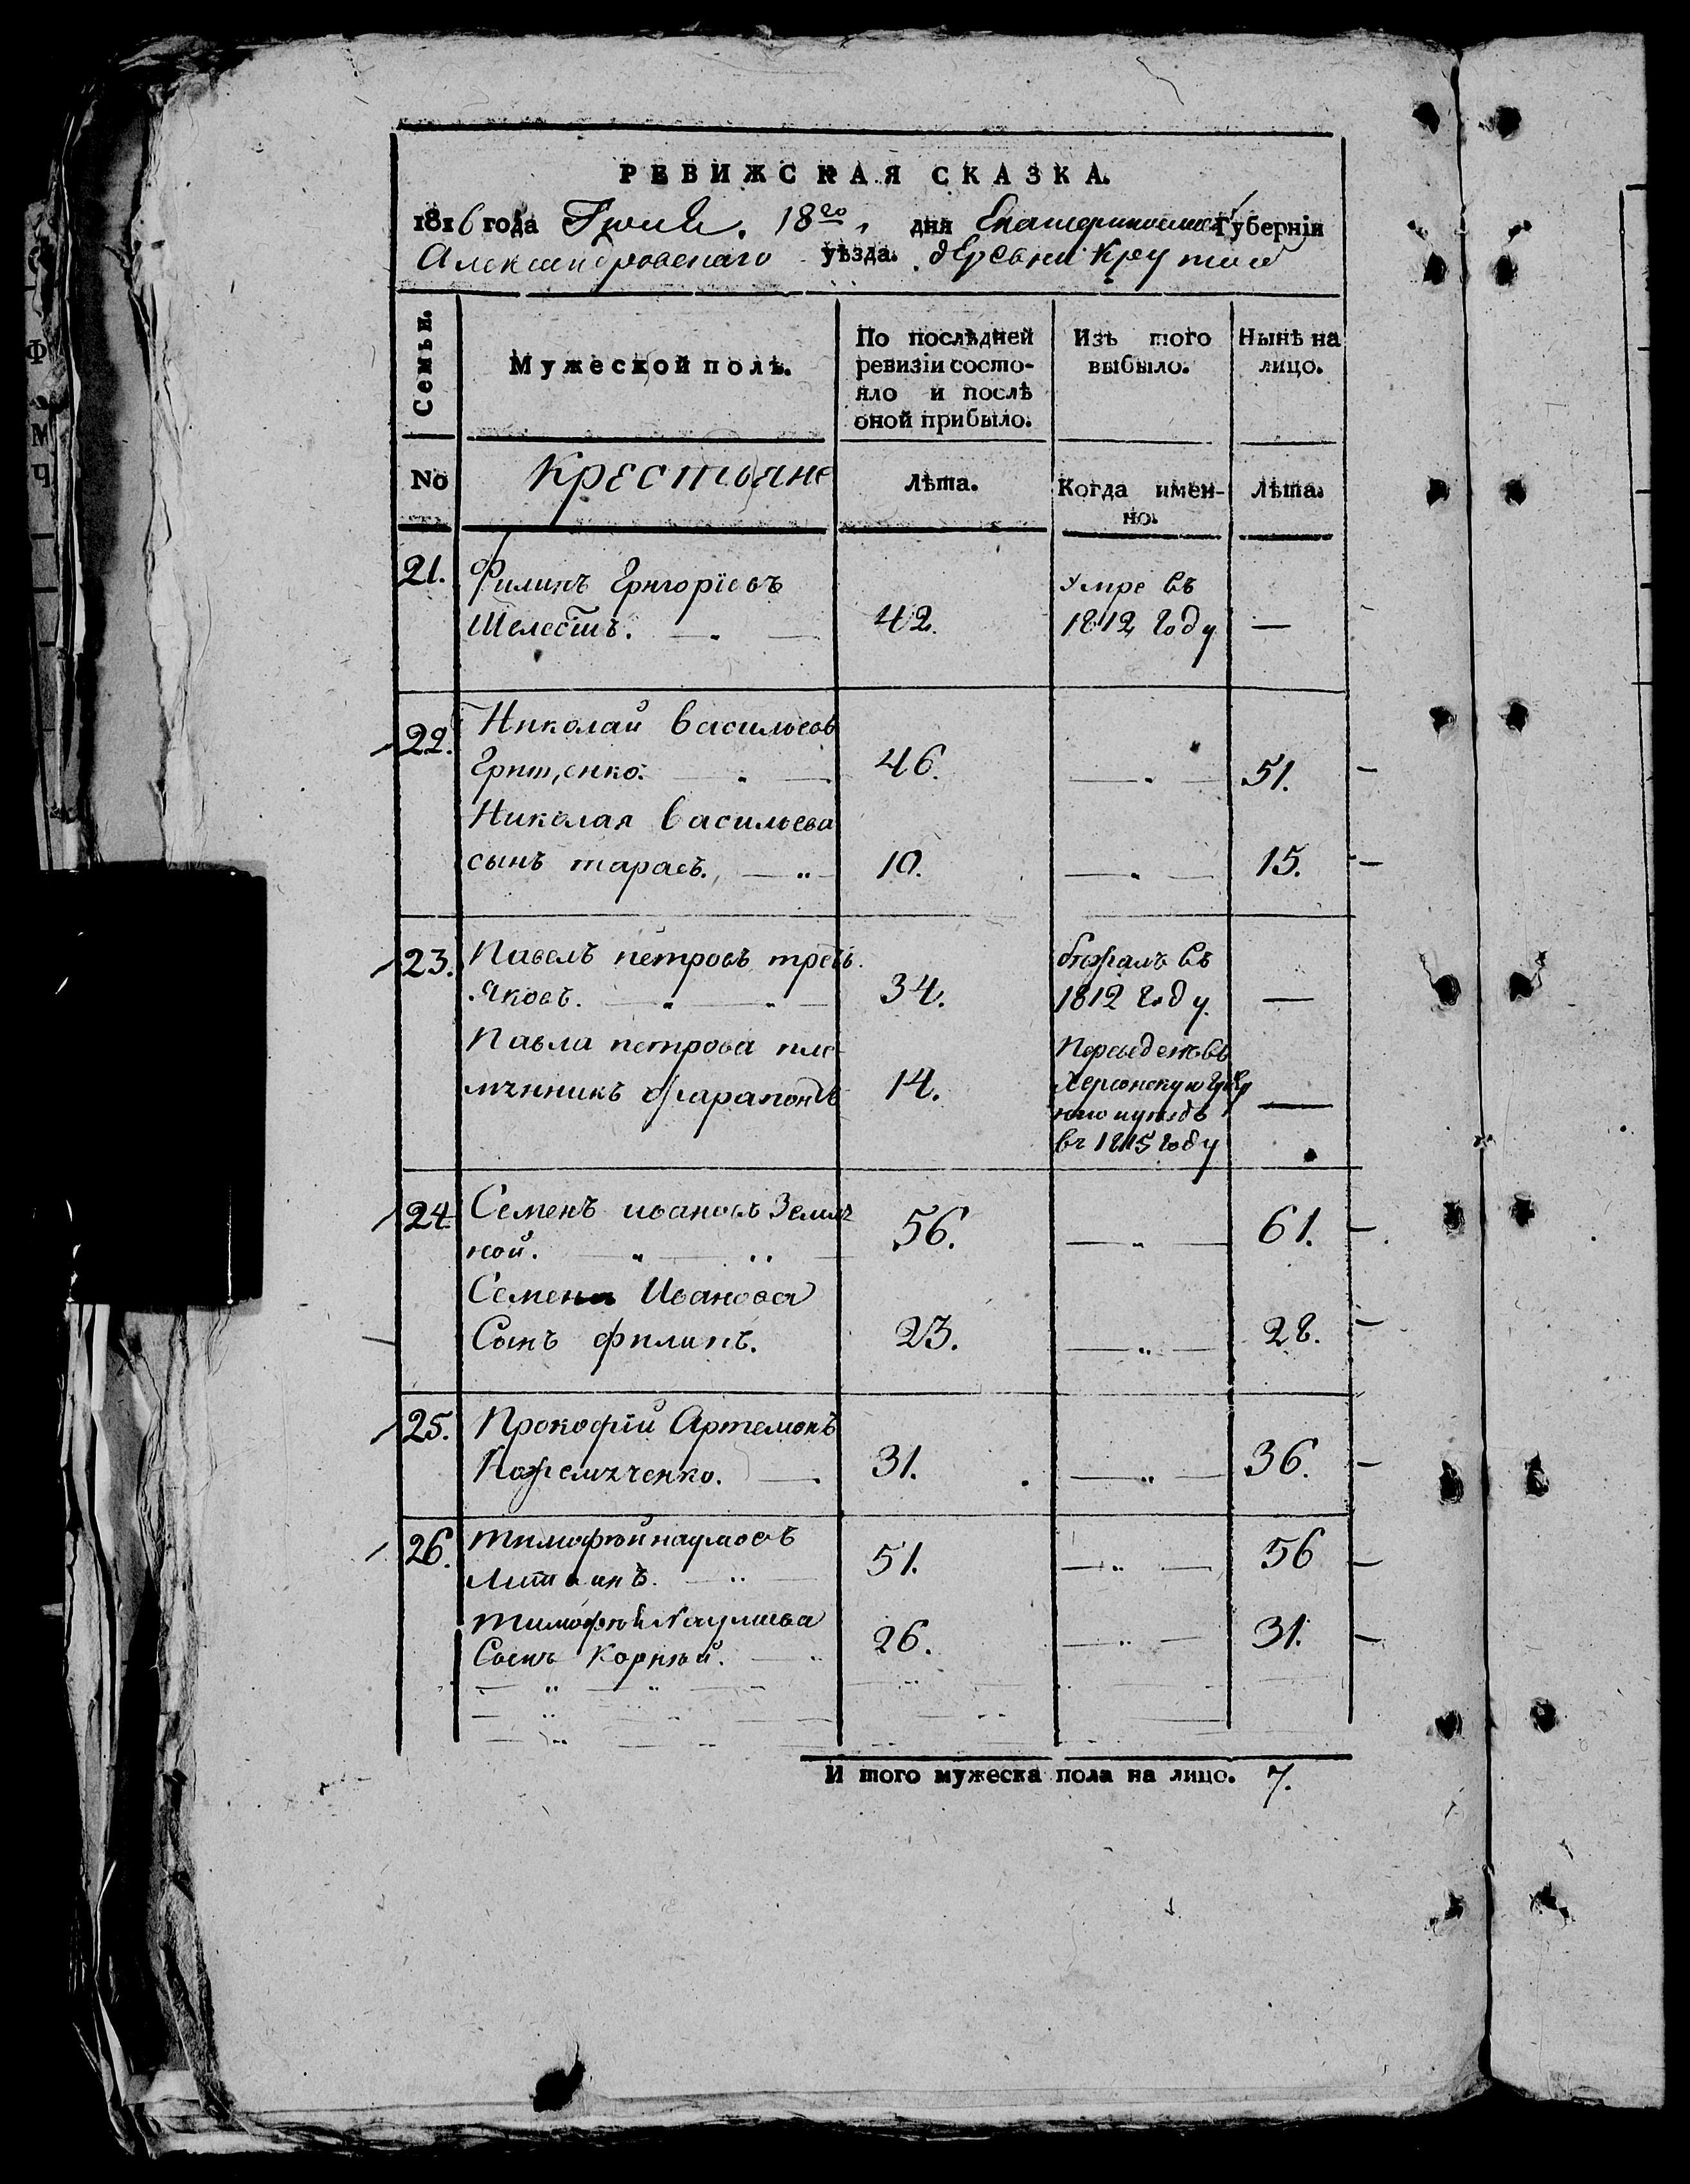 РЕВИЖСКАЯ СКАЗКА.
1816 года Іюня. 18го дня Екатеринославской Губерніи
Александровскаго уѣзда. деревни Крутой
Семьи.
Мужеской полъ.
По послѣдней
ревизіи состо-
яло и послѣ
оной прибыло.
Изъ того
выбыло.
Нынѣ на
лицо.
No
крестьяне
лѣта.
Когда имен-
но.
Лѣта.
21. Филипъ Григоріевъ
Шелестъ. 42. Умре въ 1812 году —
22. Николай Васильевъ
Гриценко. 46. — 51.
Николая Васильева
сынъ тарасъ. 10. — 15.
23. Павелъ петровъ треть
яковъ. 34. бѣжалъ въ 1812 году —
Павла петрова пле
мянникъ фарапонтъ 14.
Переведенъ въ
Херсонскую
въ 1815 году —
24. Семенъ ивановъ Земля
ной. 56. — 61.
Семена Иванова
Сынъ филипъ. 23. — 28.
25. Прокофій Артемовъ
Кожемяченко. 31. — 36.
26. тимофѣй наумовъ
Литвинъ. 51. — 56
тимофѣя Наумова
Сынъ Корнѣй. 26. — 31.
И того мужеска пола на лицо. 7.